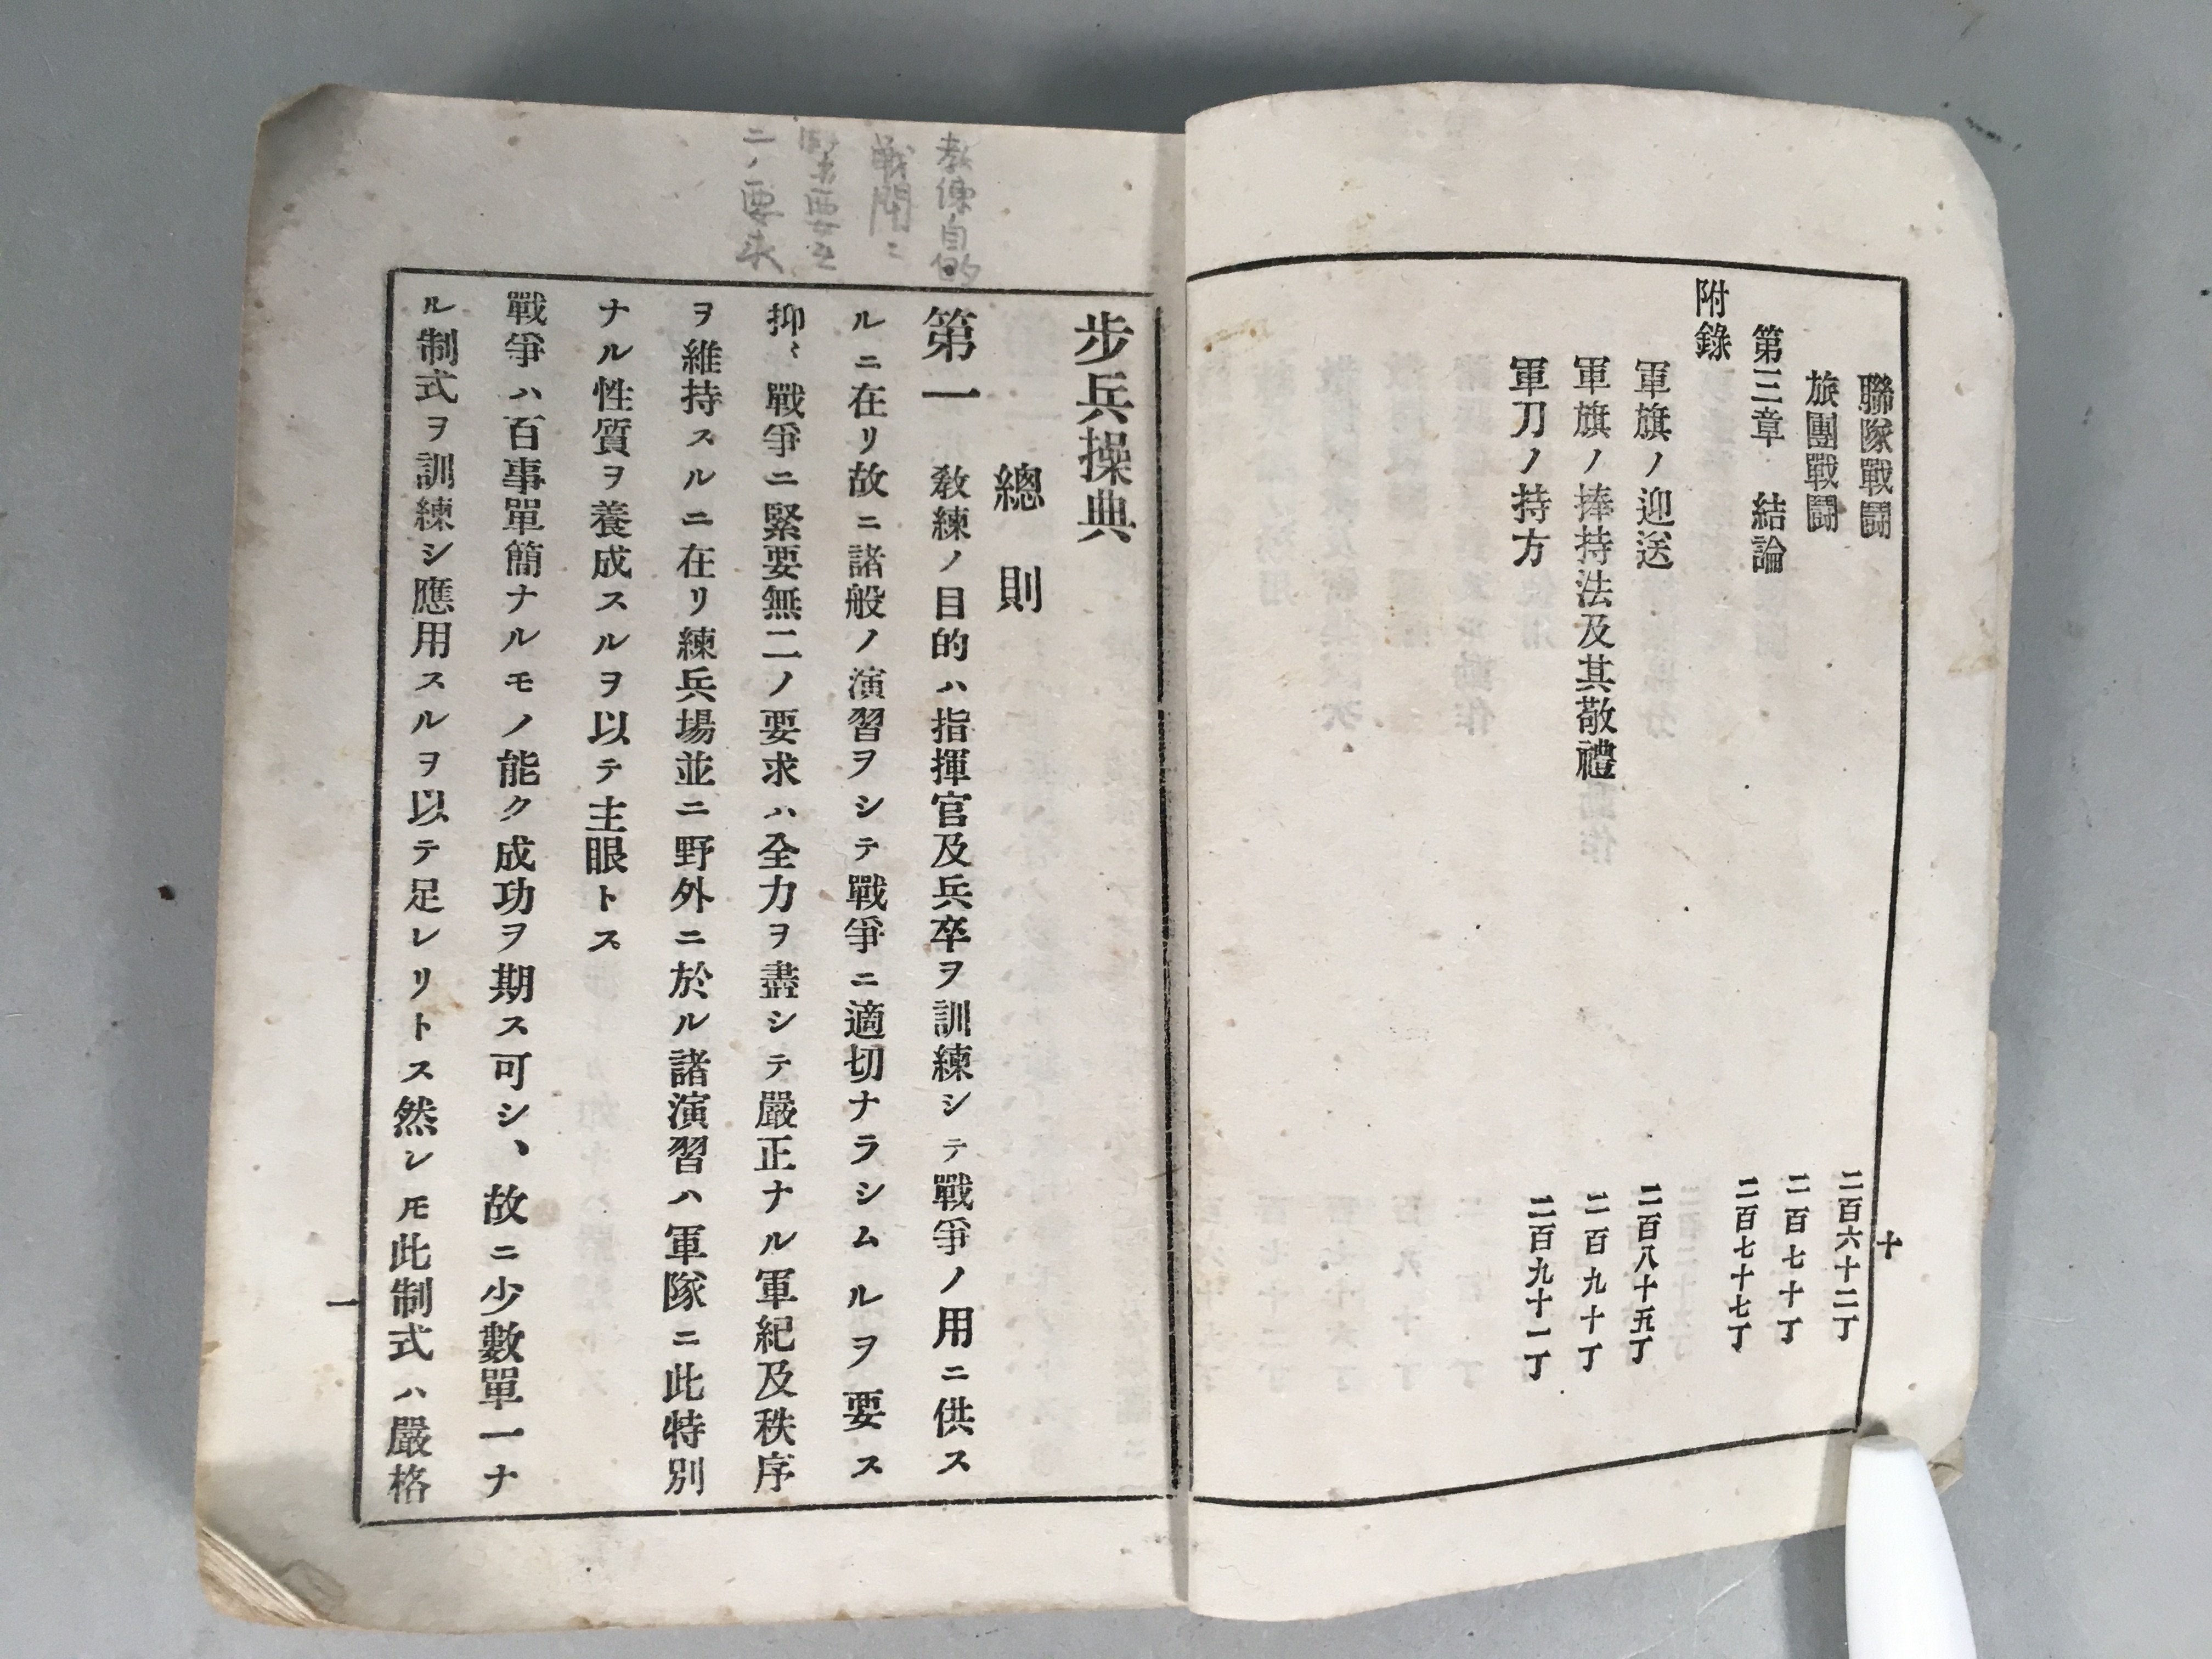 聯隊戰鬪 二百六十二丁
旅團戰鬪 二百七十丁
第三章 結論 二百七十七丁
附錄
軍旗ノ迎送 二百八十五丁
軍旗ノ捧持法及其敬禮 二百九十丁
軍刀ノ持方 二百九十一丁
十
教練目的
戦闘ニ
緊要無
二ノ要求
步兵操典
總則
第一 敎練ノ目的ハ指揮官及兵卒ヲ訓練シテ戰爭ノ用ニ供ス
ルニ在リ故ニ諸般ノ演習ヲシテ戰爭ニ適切ナラシムルヲ要ス
抑〻戰爭ニ緊要無二ノ要求ハ全力ヲ盡シテ嚴正ナル軍紀及秩序
ヲ維持スルニ在リ練兵場並ニ野外ニ於ル諸演習ハ軍隊ニ此特別
ナル性質ヲ養成スルヲ以テ主眼トス
戰爭ハ百事單簡ナルモノ能ク成功ヲ期ス可シ、故ニ少數單一ナ
ル制式ヲ訓練シ應用スルヲ以テ足レリトス然レ𪜈此制式ハ嚴格
一